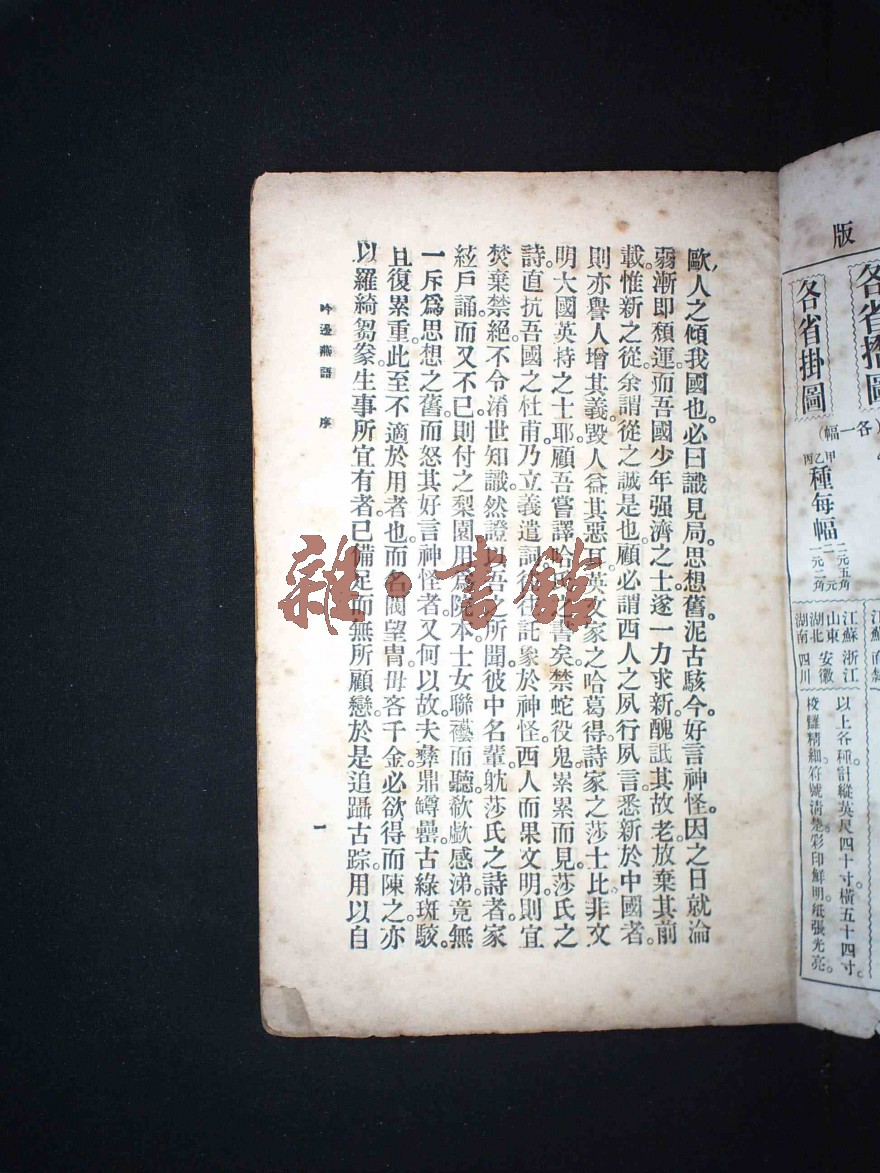 歐人之傾我國也。必曰識見局。思想舊。泥古駭今。好言神怪。因之日就淪
弱。漸即頹運。而吾國少年强濟之士。遂一力求新。醜詆其故老。放棄其前
載。惟新之從。余謂從之誠是也。顧必謂西人之夙行夙言。悉新於中國者。
則亦譽人增其義。毀人益其惡耳。英文家之哈葛得。詩家之莎士比。非文
明大國英特之士耶。顧吾嘗譯哈氏之書矣。禁蛇役鬼。累累而見。莎氏之
詩。直抗吾國之杜甫。乃立義遣詞。往往託象於神怪。西人而果文明。則宜
焚棄禁絕。不令淆世知識。然證以吾之所聞。彼中名輩。躭莎氏之詩者。家
絃戶誦。而又不已。則付之梨園。用爲院本。士女聯襼而聽。欷歔感涕。竟無
一斥爲思想之舊。而怒其好言神怪者。又何以故。夫彝鼎罇罍。古綠斑駁。
且復累重。此至不適於用者也。而名閥望胄。毋吝千金。必欲得而陳之。亦
以羅綺芻豢生事所宜有者。已備足而無所顧戀。於是追躡古踪。用以自
吟邊燕語 序 一
雜·書館
版
各省摺圖
各省掛圖
(各一幅)
甲乙丙種每幅
二元五角
二元
一元二角
江蘇 浙江
山東 安徽
湖北
湖南 四川
以上各種。計縱英尺四十寸。橫五十四寸。
校讎精細。符號清楚。彩印鮮明。紙張光亮。